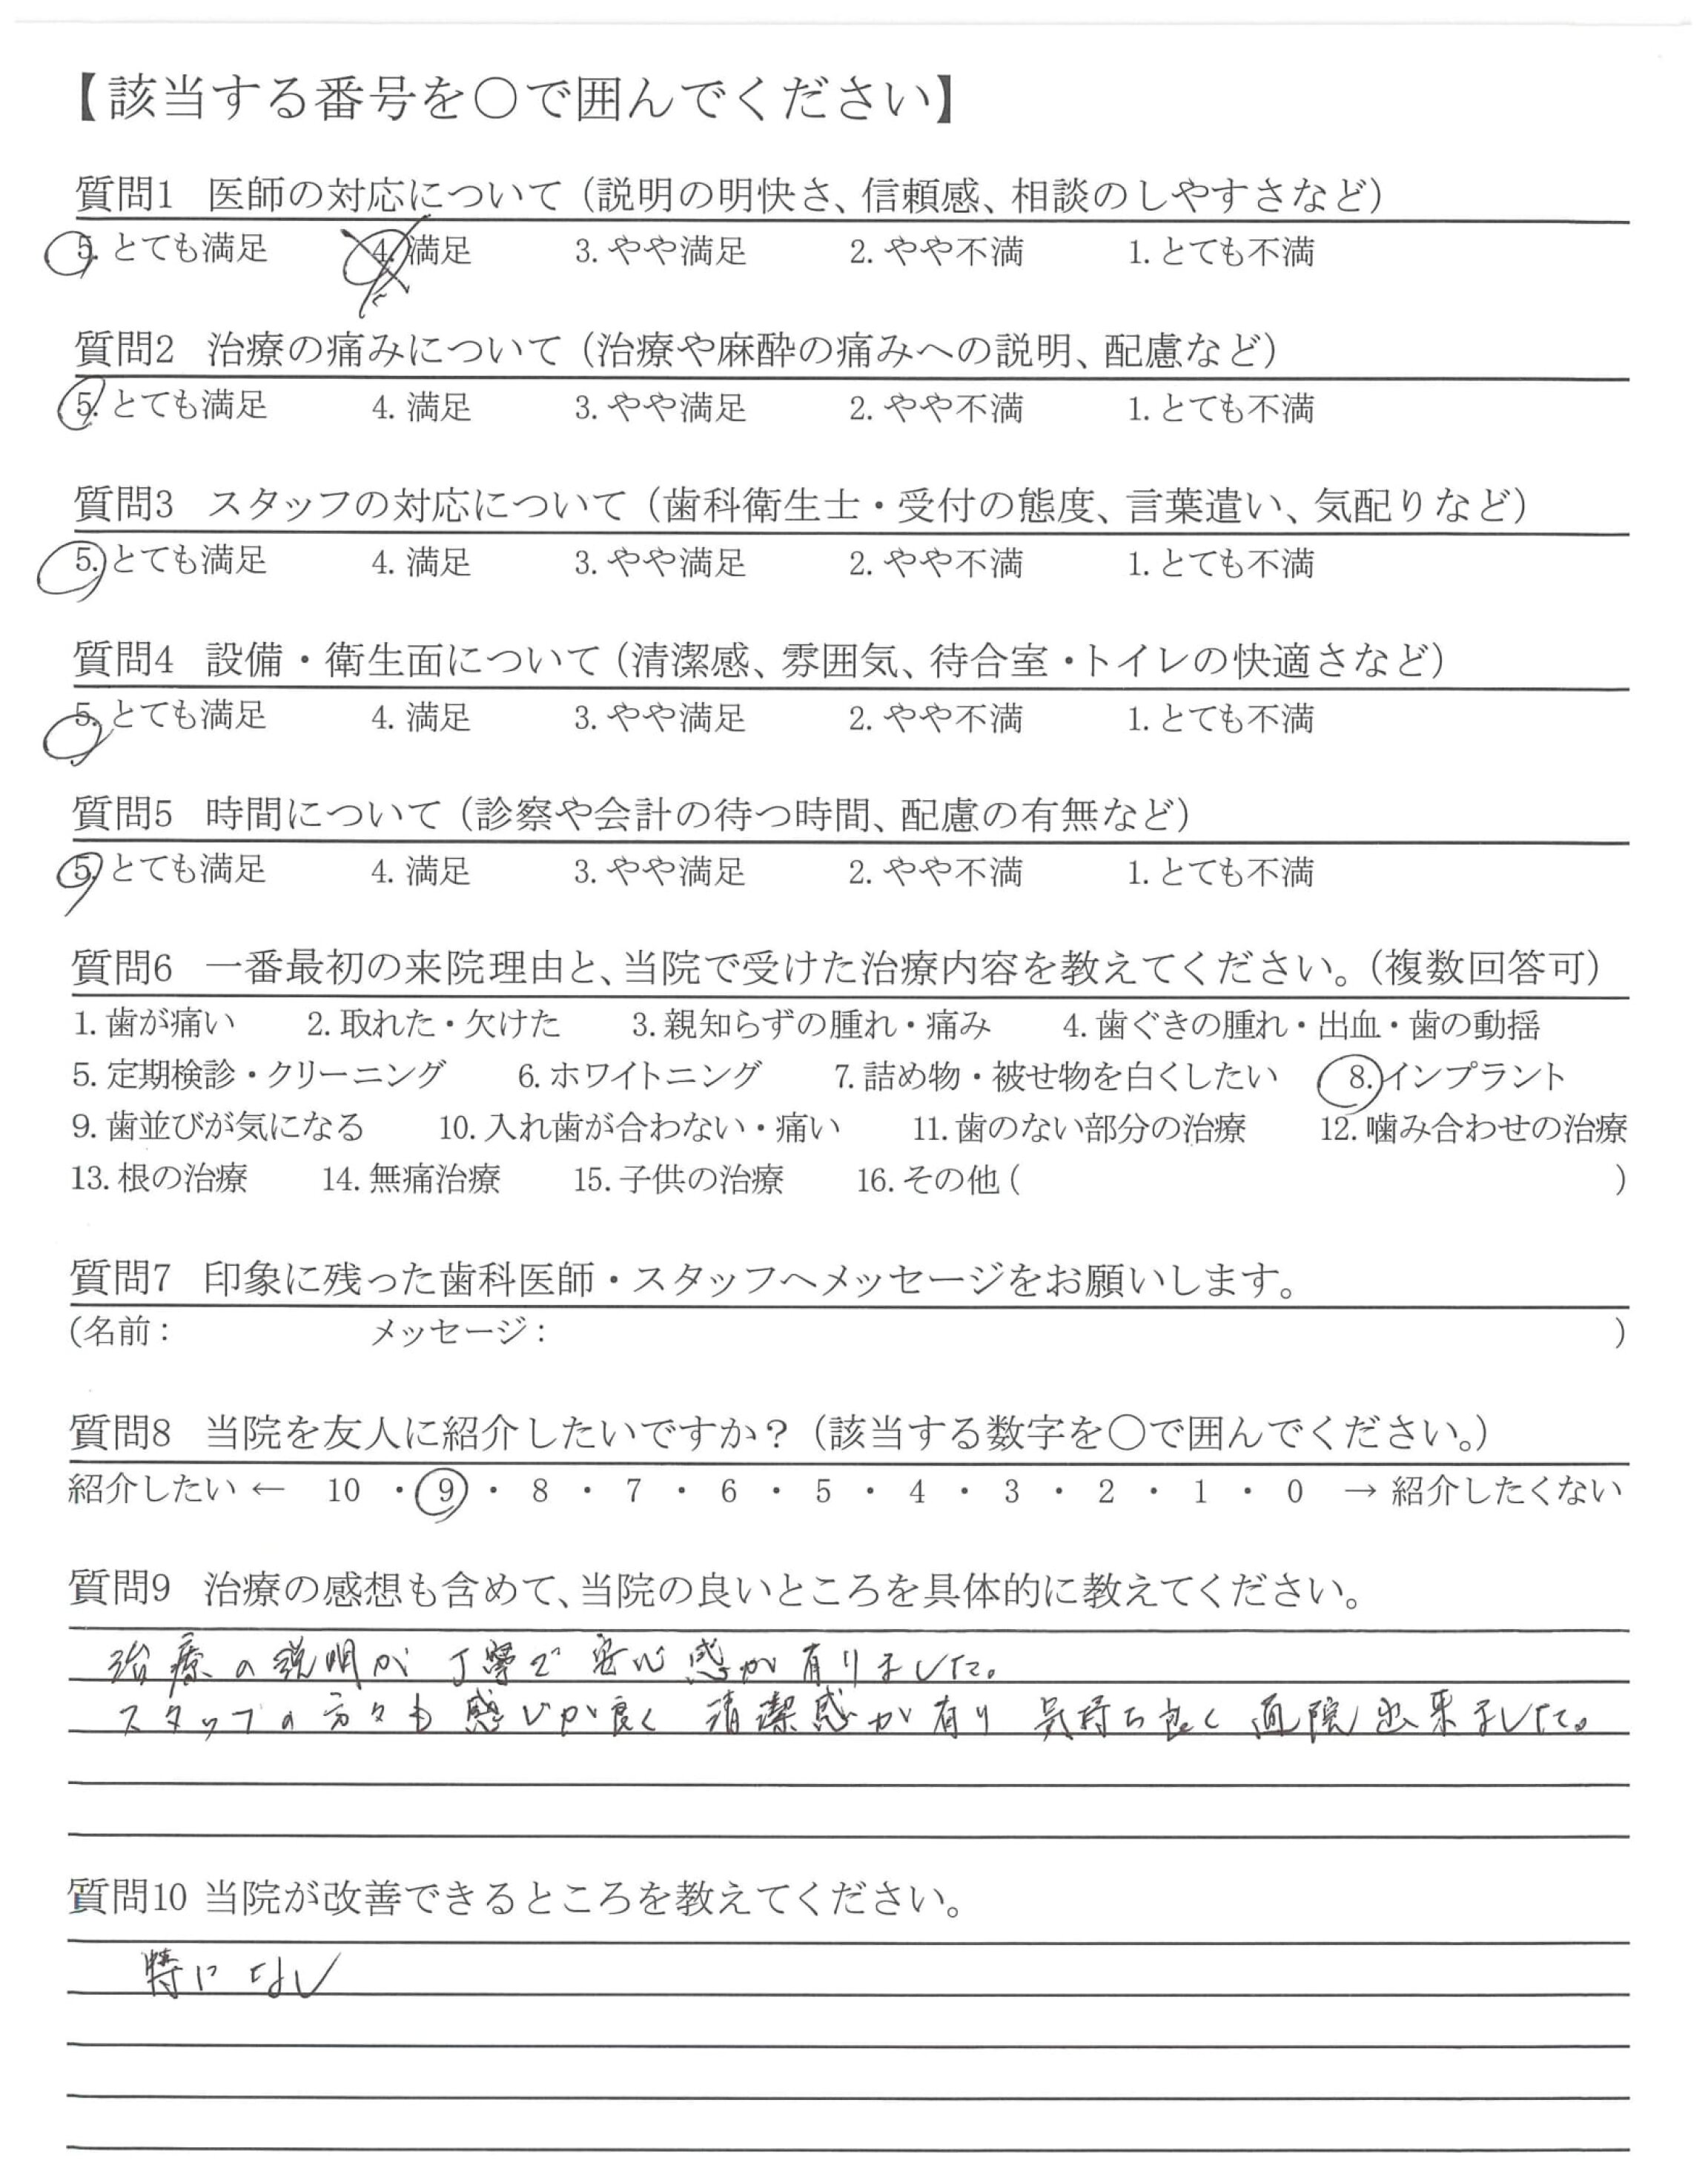 【該当する番号を○で囲んでください】
質問1 医師の対応について（説明の明快さ、信頼感、相談のしやすさなど）
5. とても満足 4. 満足 3. やや満足 2. やや不満 1. とても不満
質問2 治療の痛みについて（治療や麻酔の痛みへの説明、配慮など）
5. とても満足 4. 満足 3. やや満足 2. やや不満 1. とても不満
質問3 スタッフの対応について（歯科衛生士・受付の態度、言葉遣い、気配りなど）
5. とても満足 4. 満足 3. やや満足 2. やや不満 1. とても不満
質問4 設備・衛生面について（清潔感、雰囲気、待合室・トイレの快適さなど）
5. とても満足 4. 満足 3. やや満足 2. やや不満 1. とても不満
質問5 時間について（診察や会計の待つ時間、配慮の有無など）
5. とても満足 4. 満足 3. やや満足 2. やや不満 1. とても不満
質問6 一番最初の来院理由と、当院で受けた治療内容を教えてください。（複数回答可）
1. 歯が痛い 2. 取れた・欠けた 3. 親知らずの腫れ・痛み 4. 歯ぐきの腫れ・出血・歯の動揺
5. 定期検診・クリーニング 6. ホワイトニング 7. 詰め物・被せ物を白くしたい 8. インプラント
9. 歯並びが気になる 10. 入れ歯が合わない・痛い 11. 歯のない部分の治療 12. 噛み合わせの治療
13. 根の治療 14. 無痛治療 15. 子供の治療 16. その他（ ）
質問7 印象に残った歯科医師・スタッフへメッセージをお願いします。
（名前： メッセージ： ）
質問8 当院を友人に紹介したいですか？（該当する数字を○で囲んでください。）
紹介したい ← 10 ・ 9 ・ 8 ・ 7 ・ 6 ・ 5 ・ 4 ・ 3 ・ 2 ・ 1 ・ 0 → 紹介したくない
質問9 治療の感想も含めて、当院の良いところを具体的に教えてください。
治療の説明が丁寧で安心感が有りました。
スタッフの方々も感じが良く 清潔感が有り 気持ち良く 通院出来ました。
質問10 当院が改善できるところを教えてください。
特になし